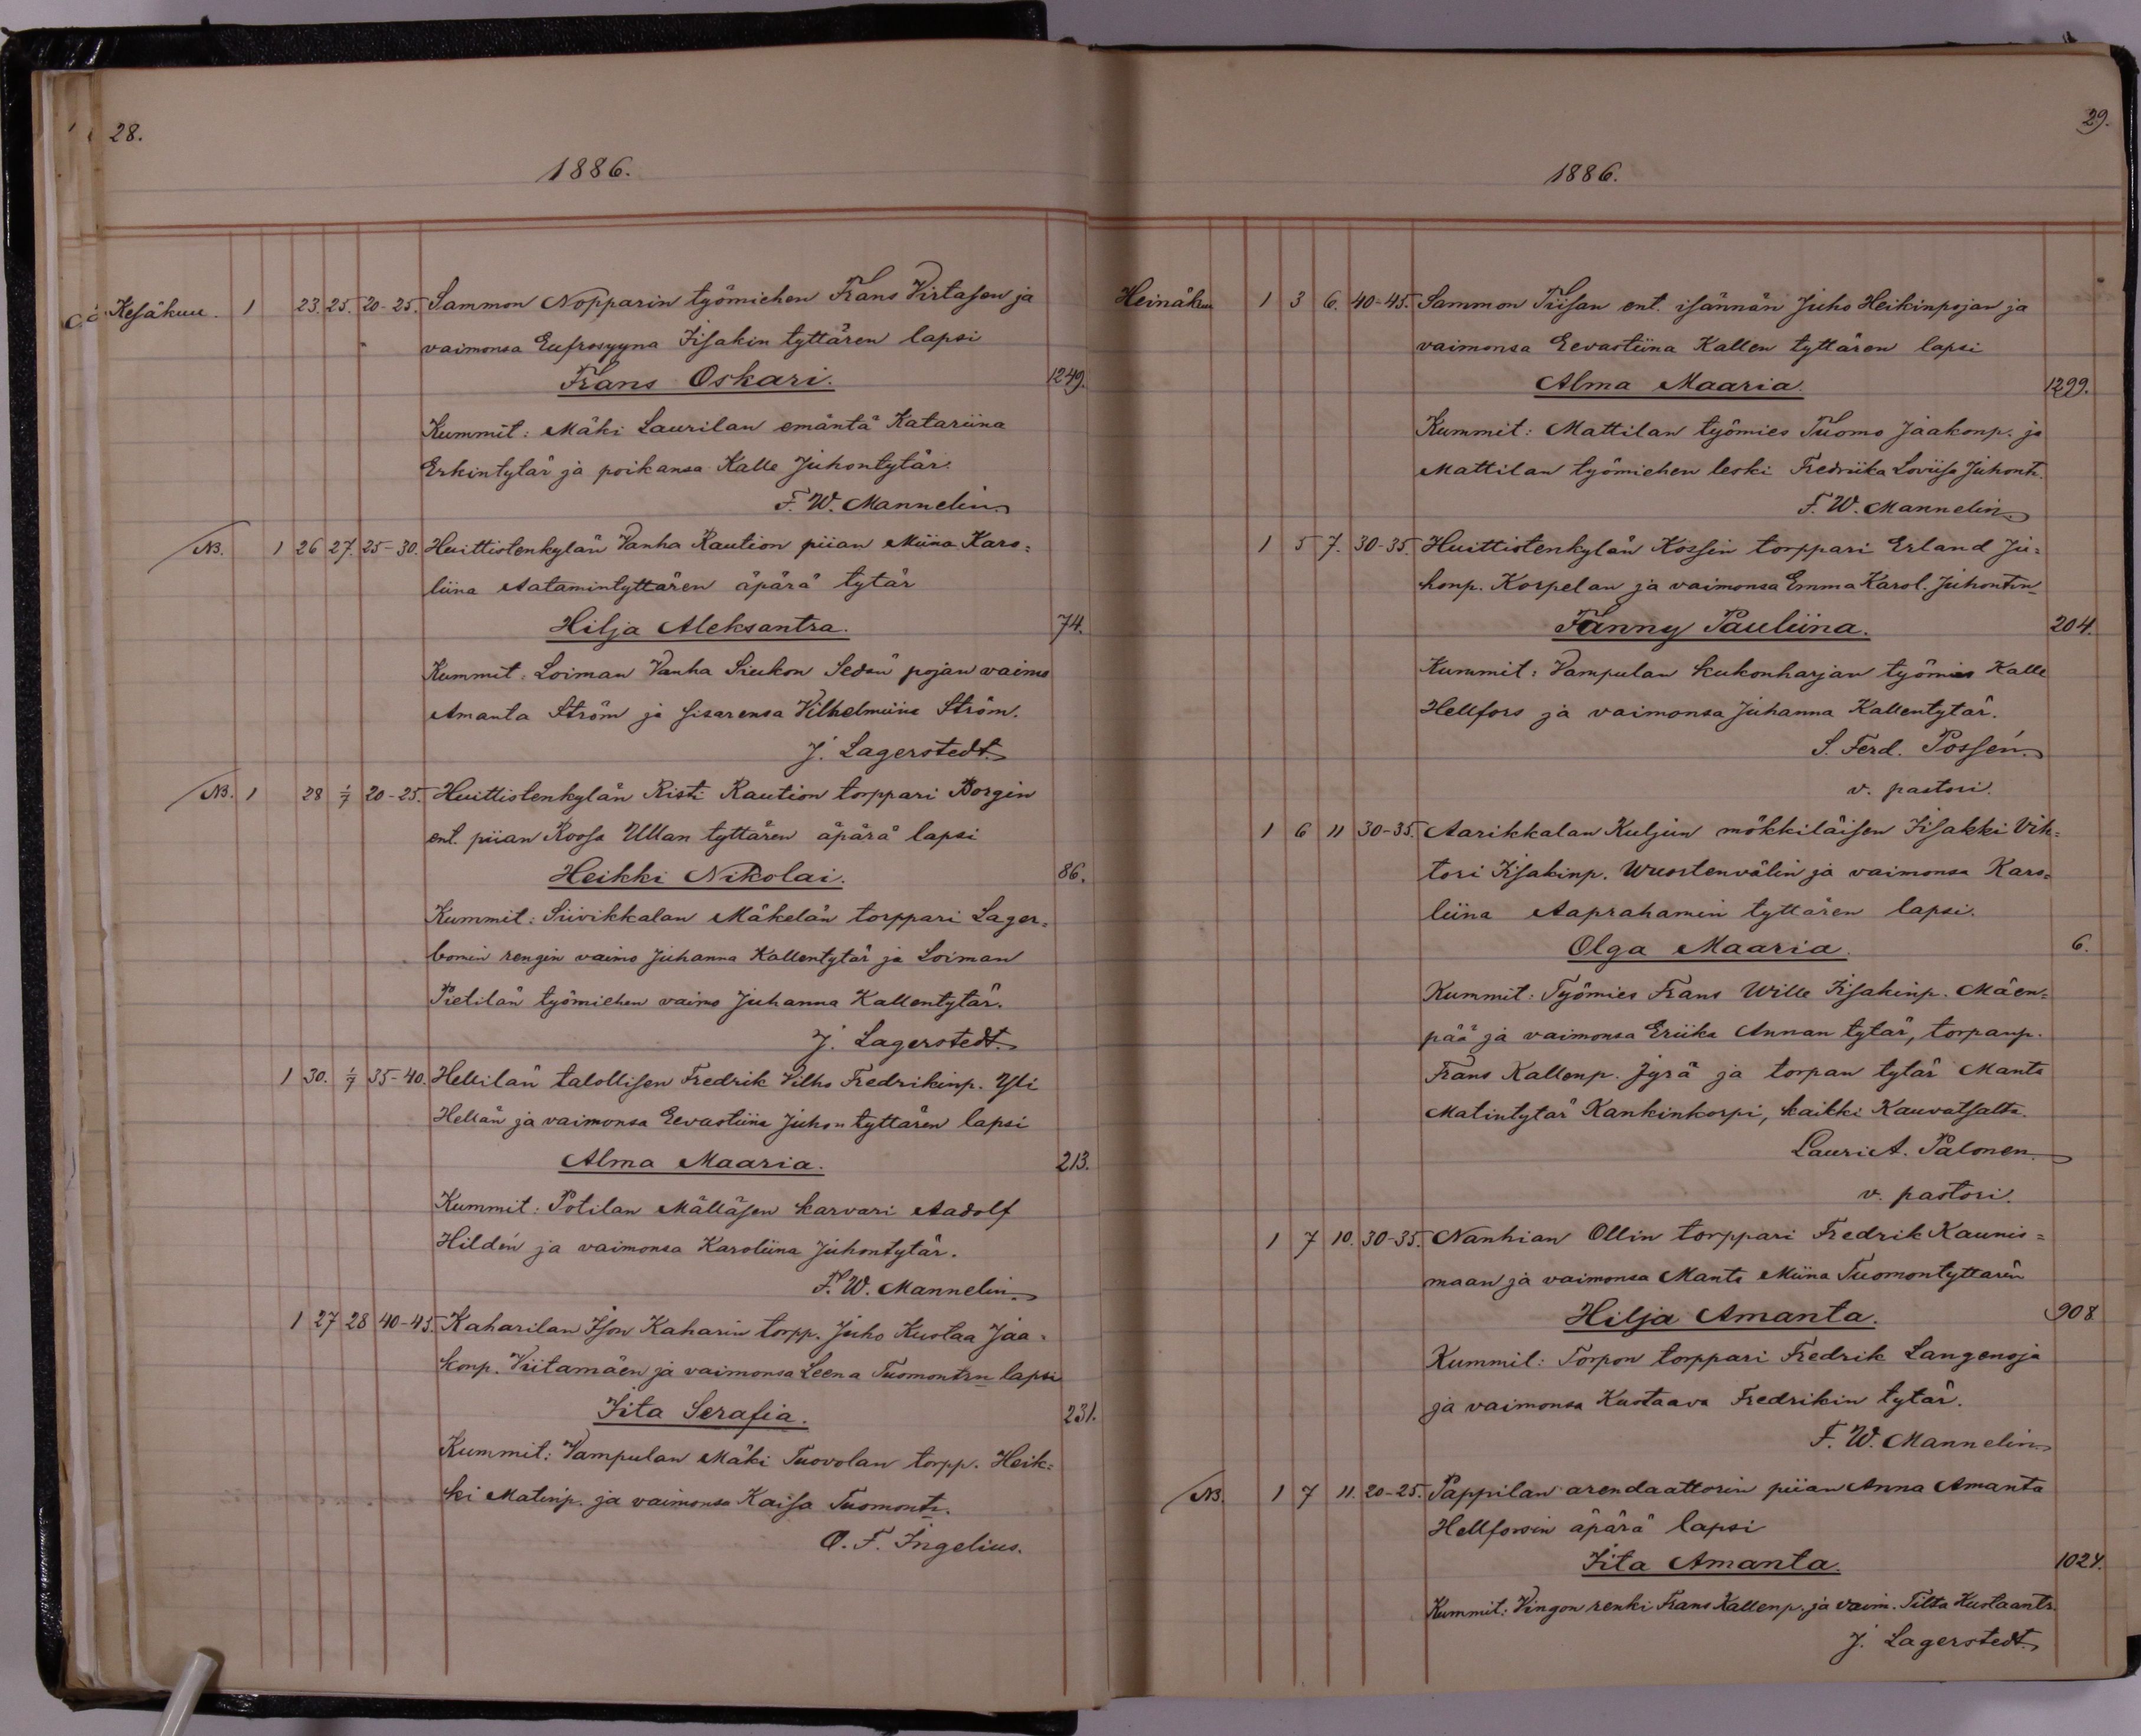 28.
1886.
Kesäkuu. 1 23. 25. 20-25. Sammon Nopparin työmiehen Frans Virtasen ja
vaimonsa Eufrosyyna Iisakin tyttären lapsi
Frans Oskari. 1249.
Kummit: Mäki Laurilan emäntä Katariina
Erkintytär ja poikansa Kalle Juhontytär.
F. W. Mannelin.
NB. 1 26 27. 25-30. Huittistenkylän Vanha Raution piian Miina Karo=
liina Aatamintyttären äpärä tytär
Hilja Aleksantra. 74.
Kummit: Loiman Vanha Siukon Sedän pojan vaimo
Amanta Ström ja sisarensa Vilhelmiina Ström.
J. Lagerstedt.
NB. 1 28 1/7 20-25. Huittistenkylän Risti Raution torppari Borgin
ent. piian Roosa Ullan tyttären äpärä lapsi
Heikki Nikolai. 86.
Kummit: Siivikkalan Mäkelän torppari Lager=
bomin rengin vaimo Juhanna Kallentytär ja Loiman
Pietilän työmiehen vaimo Juhanna Kallentytär.
J. Lagerstedt.
1 30. 1/7 35-40. Hellilän talollisen Fredrik Vilho Fredrikinp. Yli
Hellän ja vaimonsa Eevastiina Juhon tyttären lapsi
Alma Maaria. 213.
Kummit: Potilan Mälläsen karvari Aadolf
Hildén ja vaimonsa Karoliina Juhontytär.
F. W. Mannelin.
1 27 28 40-45. Kaharilan Ison Kaharin torpp. Juho Kustaa Jaa=
konp. Viitamäen ja vaimonsa Leena Tuomontrn lapsi
Iita Serafia. 231.
Kummit: Vampulan Mäki Tuovolan torpp. Heik=
ki Matinp. ja vaimonsa Kaisa Tuomontr.
O. F. Ingelius.
29.
1886.
Heinäkuu 1 3 6. 40-45. Sammon Tiisan ent. isännän Juho Heikinpojan ja
vaimonsa Eevastiina Kallen tyttären lapsi
Alma Maaria. 1299.
Kummit: Mattilan työmies Tuomo Jaakonp. ja
Mattilan työmiehen leski Fredriika Loviisa Juhontr.
F. W. Mannelin.
1 5 7. 30-35. Huittistenkylän Kossin torppari Erland Ju=
honp. Korpelan ja vaimonsa Emma Karol. Juhontrn
Fanny Pauliina. 204.
Kummit: Vampulan Kukonharjan työmies Kalle
Hellfors ja vaimonsa Juhanna Kallentytär.
S. Ferd. Possén.
v. pastori.
1 6 11 30-35. Aarikkalan Kuljun mökkiläisen Iisakki Vih=
tori Iisakinp. Wuostenvälin ja vaimonsa Karo=
liina Aaprahamin tyttären lapsi.
Olga Maaria. 6.
Kummit: Työmies Frans Wille Iisakinp. Mäen=
pää ja vaimonsa Eriika Annan tytär, torpanp.
Frans Kallenp. Jyrä ja torpan tytär Manta
Matintytär Kankinkorpi, kaikki Kauvatsalta.
Lauri A. Palonen.
v. pastori.
1 7 10. 30-35. Nanhian Ollin torppari Fredrik Kaunis=
maan ja vaimonsa Manta Miina Tuomontyttären
Hilja Amanta. 908
Kummit: Torpon torppari Fredrik Langenoja
ja vaimonsa Kustaava Fredrikin tytär.
F. W. Mannelin.
NB. 1 7 11. 20-25. Pappilan arendaattorin piian Anna Amanta
Hellforsin äpärä lapsi
Iita Amanta. 1024.
Kummit: Vingon renki Frans Kallenp. ja vaim. Tilta Kustaantr.
J. Lagerstedt.